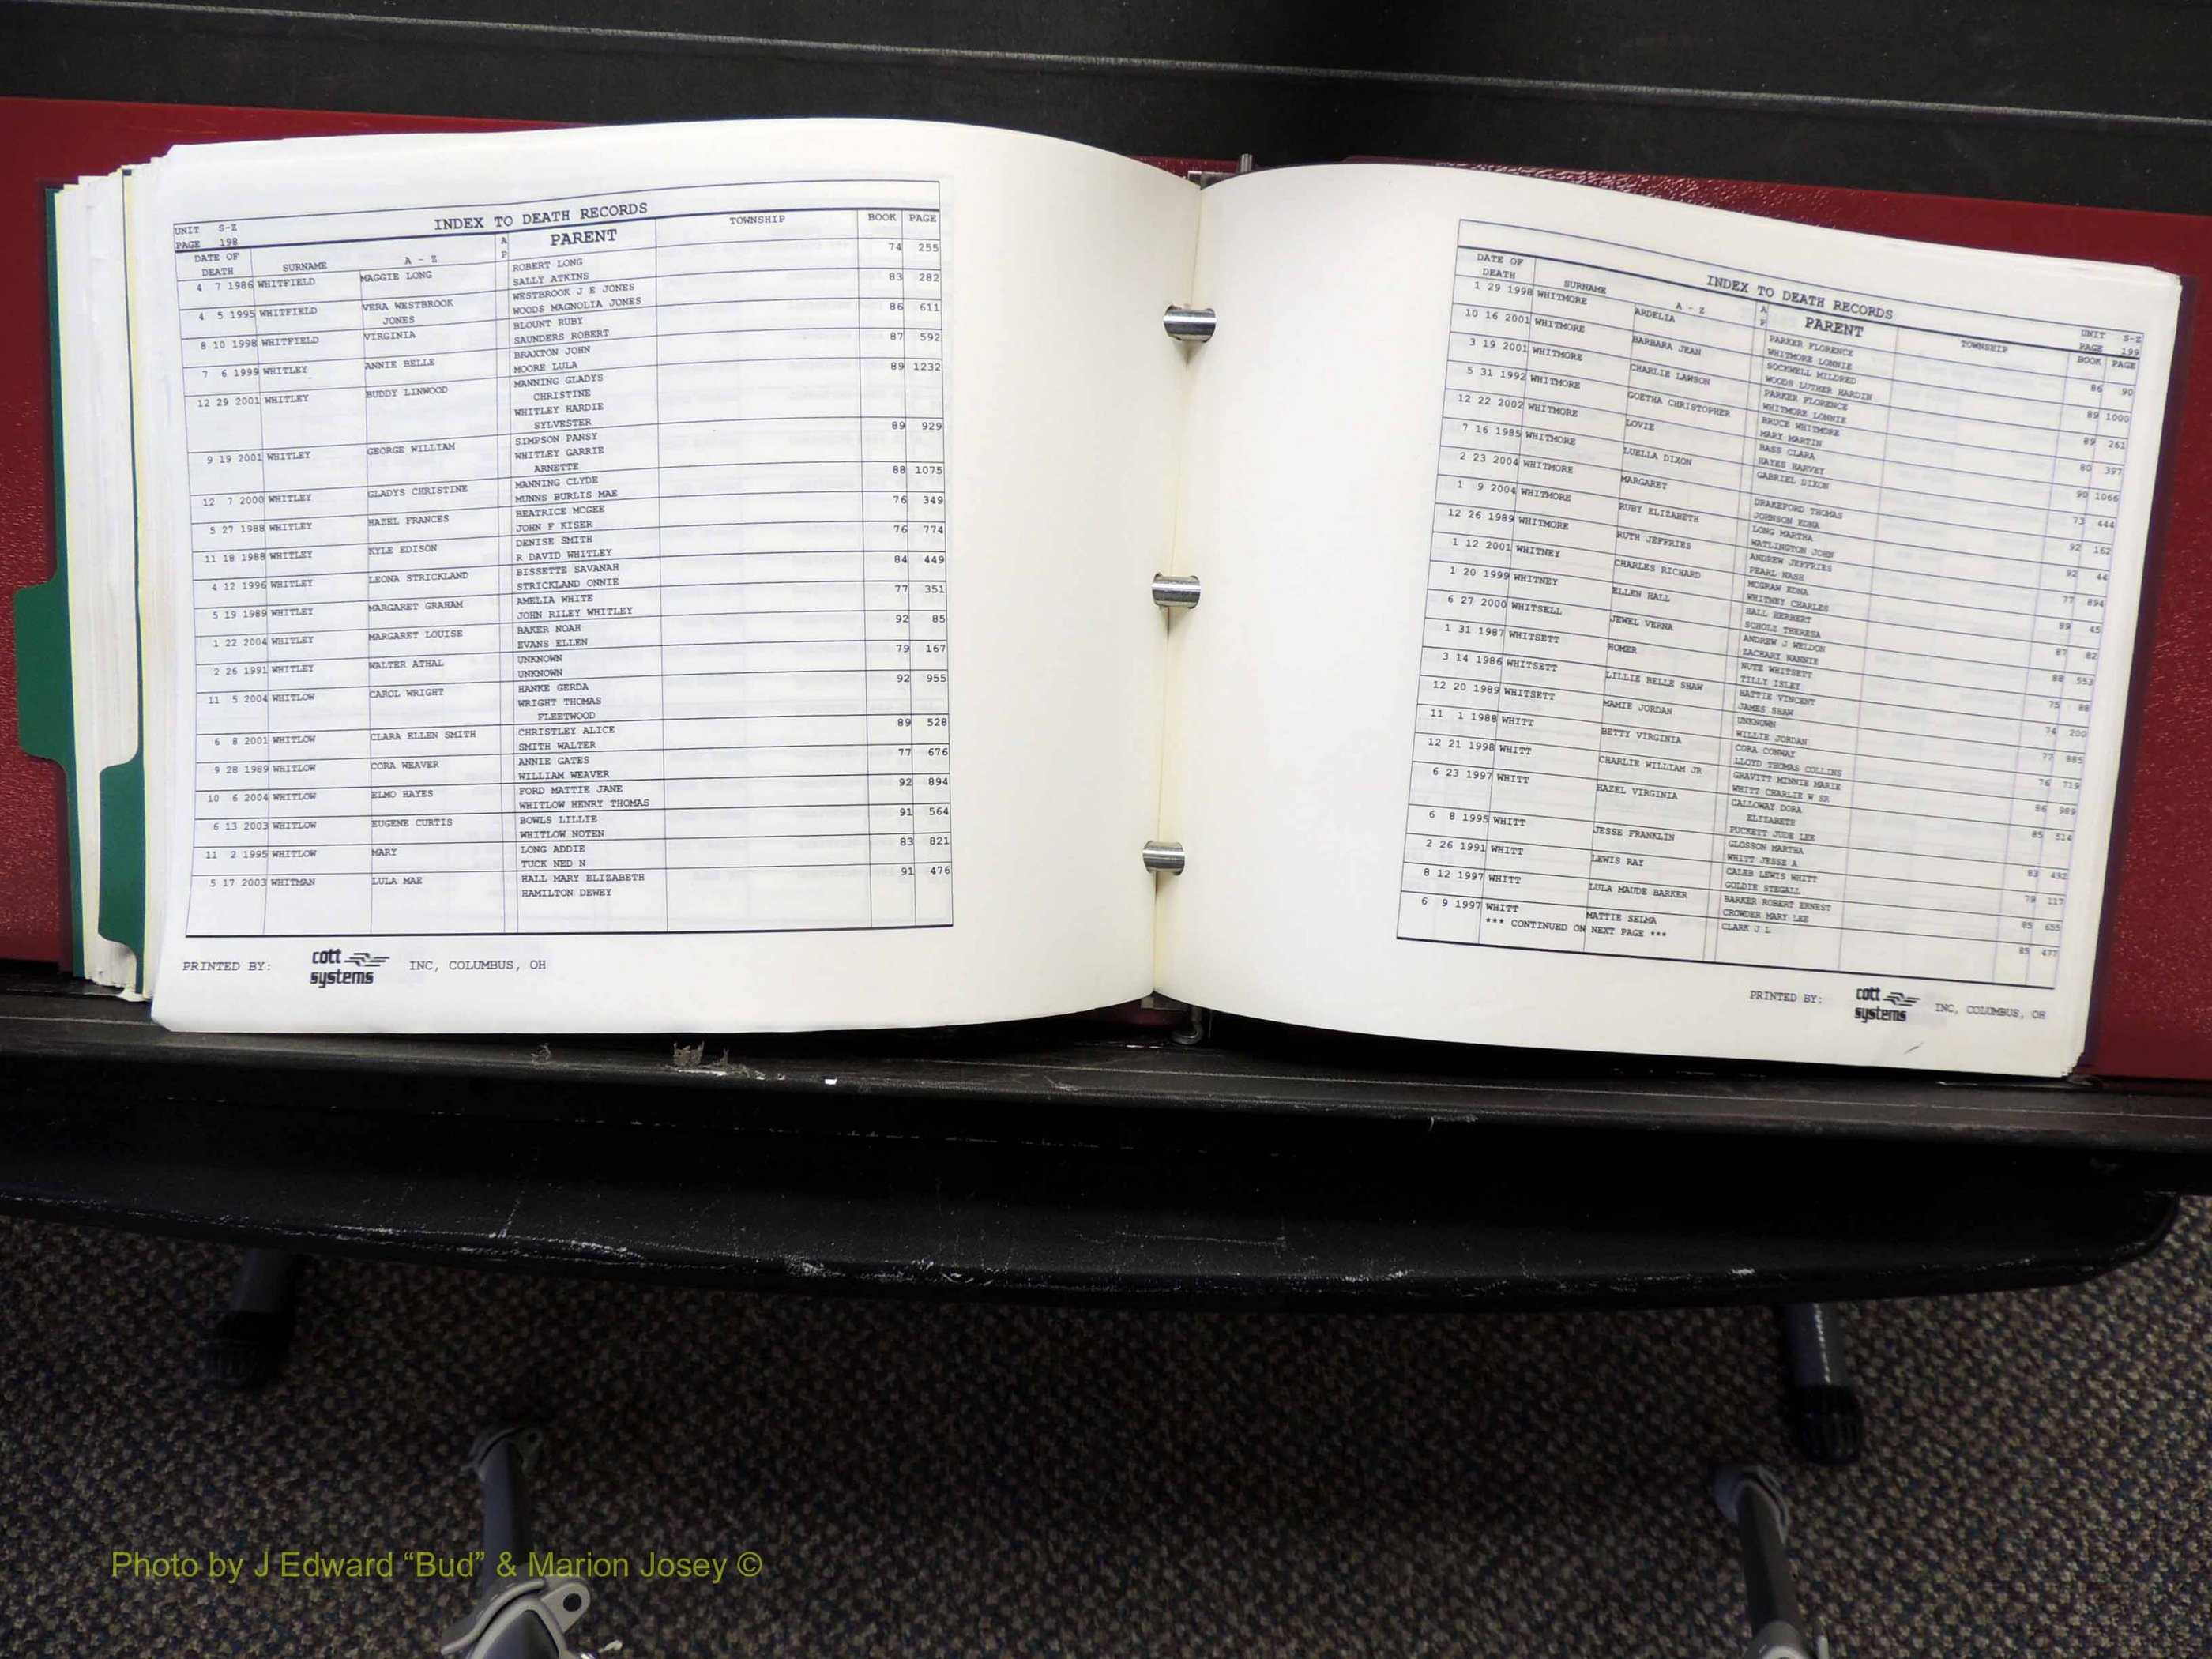 UNIT S-Z
PAGE 198
INDEX TO DEATH RECORDS
DATE OF DEATH SURNAME A - Z A P PARENT TOWNSHIP BOOK PAGE
4 7 1986 WHITFIELD MAGGIE LONG ROBERT LONG 74 255
SALLY ATKINS
4 5 1995 WHITFIELD VERA WESTBROOK WESTBROOK J E JONES 83 282
JONES WOODS MAGNOLIA JONES
8 10 1998 WHITFIELD VIRGINIA BLOUNT RUBY 86 611
SAUNDERS ROBERT
7 6 1999 WHITLEY ANNIE BELLE BRAXTON JOHN 87 592
MOORE LULA
12 29 2001 WHITLEY BUDDY LINWOOD MANNING GLADYS 89 1232
CHRISTINE
WHITLEY HARDIE
SYLVESTER
9 19 2001 WHITLEY GEORGE WILLIAM SIMPSON PANSY 89 929
WHITLEY GARRIE
ARNETTE
12 7 2000 WHITLEY GLADYS CHRISTINE MANNING CLYDE 88 1075
MUNNS BURLIS MAE
5 27 1988 WHITLEY HAZEL FRANCES BEATRICE MCGEE 76 349
JOHN F KISER
11 18 1988 WHITLEY KYLE EDISON DENISE SMITH 76 774
R DAVID WHITLEY
4 12 1996 WHITLEY LEONA STRICKLAND BISSETTE SAVANAH 84 449
STRICKLAND ONNIE
5 19 1989 WHITLEY MARGARET GRAHAM AMELIA WHITE 77 351
JOHN RILEY WHITLEY
1 22 2004 WHITLEY MARGARET LOUISE BAKER NOAH 92 85
EVANS ELLEN
2 26 1991 WHITLEY WALTER ATHAL UNKNOWN 79 167
UNKNOWN
11 5 2004 WHITLOW CAROL WRIGHT HANKE GERDA 92 955
WRIGHT THOMAS
FLEETWOOD
6 8 2001 WHITLOW CLARA ELLEN SMITH CHRISTLEY ALICE 89 528
SMITH WALTER
9 28 1989 WHITLOW CORA WEAVER ANNIE GATES 77 676
WILLIAM WEAVER
10 6 2004 WHITLOW ELMO HAYES FORD MATTIE JANE 92 894
WHITLOW HENRY THOMAS
6 13 2003 WHITLOW EUGENE CURTIS BOWLS LILLIE 91 564
WHITLOW NOTEN
11 2 1995 WHITLOW MARY LONG ADDIE 83 821
TUCK NED N
5 17 2003 WHITMAN LULA MAE HALL MARY ELIZABETH 91 476
HAMILTON DEWEY
PRINTED BY: cott systems INC, COLUMBUS, OH
INDEX TO DEATH RECORDS
UNIT S-Z
PAGE 199
DATE OF DEATH SURNAME A - Z A P PARENT TOWNSHIP BOOK PAGE
1 29 1998 WHITMORE ARDELIA PARKER FLORENCE 86 90
WHITMORE LONNIE
10 16 2001 WHITMORE BARBARA JEAN SOCKWELL MILDRED 89 1000
WOODS LUTHER HARDIN
3 19 2001 WHITMORE CHARLIE LAWSON PARKER FLORENCE 89 261
WHITMORE LONNIE
5 31 1992 WHITMORE GOETHA CHRISTOPHER BRUCE WHITMORE 80 397
MARY MARTIN
12 22 2002 WHITMORE LOVIE BASS CLARA 90 1066
HAYES HARVEY
7 16 1985 WHITMORE LUELLA DIXON GABRIEL DIXON 73 444
2 23 2004 WHITMORE MARGARET DRAKEFORD THOMAS 92 162
JOHNSON EDNA
1 9 2004 WHITMORE RUBY ELIZABETH LONG MARTHA 92 44
WATLINGTON JOHN
12 26 1989 WHITMORE RUTH JEFFRIES ANDREW JEFFRIES 77 894
PEARL NASH
1 12 2001 WHITNEY CHARLES RICHARD MCGRAW EDNA 89 45
WHITNEY CHARLES
1 20 1999 WHITNEY ELLEN HALL HALL HERBERT 87 82
SCHOLZ THERESA
6 27 2000 WHITSELL JEWEL VERNA ANDREW J WELDON 88 553
ZACHARY NANNIE
1 31 1987 WHITSETT HOMER NUTE WHITSETT 75 88
TILLY ISLEY
3 14 1986 WHITSETT LILLIE BELLE SHAW HATTIE VINCENT 74 200
JAMES SHAW
12 20 1989 WHITSETT MAMIE JORDAN UNKNOWN 77 885
WILLIE JORDAN
11 1 1988 WHITT BETTY VIRGINIA CORA CONWAY 76 719
LLOYD THOMAS COLLINS
12 21 1998 WHITT CHARLIE WILLIAM JR GRAVITT MINNIE MARIE 86 989
WHITT CHARLIE W SR
6 23 1997 WHITT HAZEL VIRGINIA CALLOWAY DORA 85 514
ELIZABETH
PUCKETT JUDE LEE
6 8 1995 WHITT JESSE FRANKLIN GLOSSON MARTHA 83 492
WHITT JESSE A
2 26 1991 WHITT LEWIS RAY CALEB LEWIS WHITT 79 117
GOLDIE STEGALL
8 12 1997 WHITT LULA MAUDE BARKER BARKER ROBERT ERNEST 85 655
CROWDER MARY LEE
6 9 1997 WHITT MATTIE SELMA CLARK J L 85 477
*** CONTINUED ON NEXT PAGE ***
PRINTED BY: cott systems INC, COLUMBUS, OH
Photo by J Edward “Bud” & Marion Josey ©